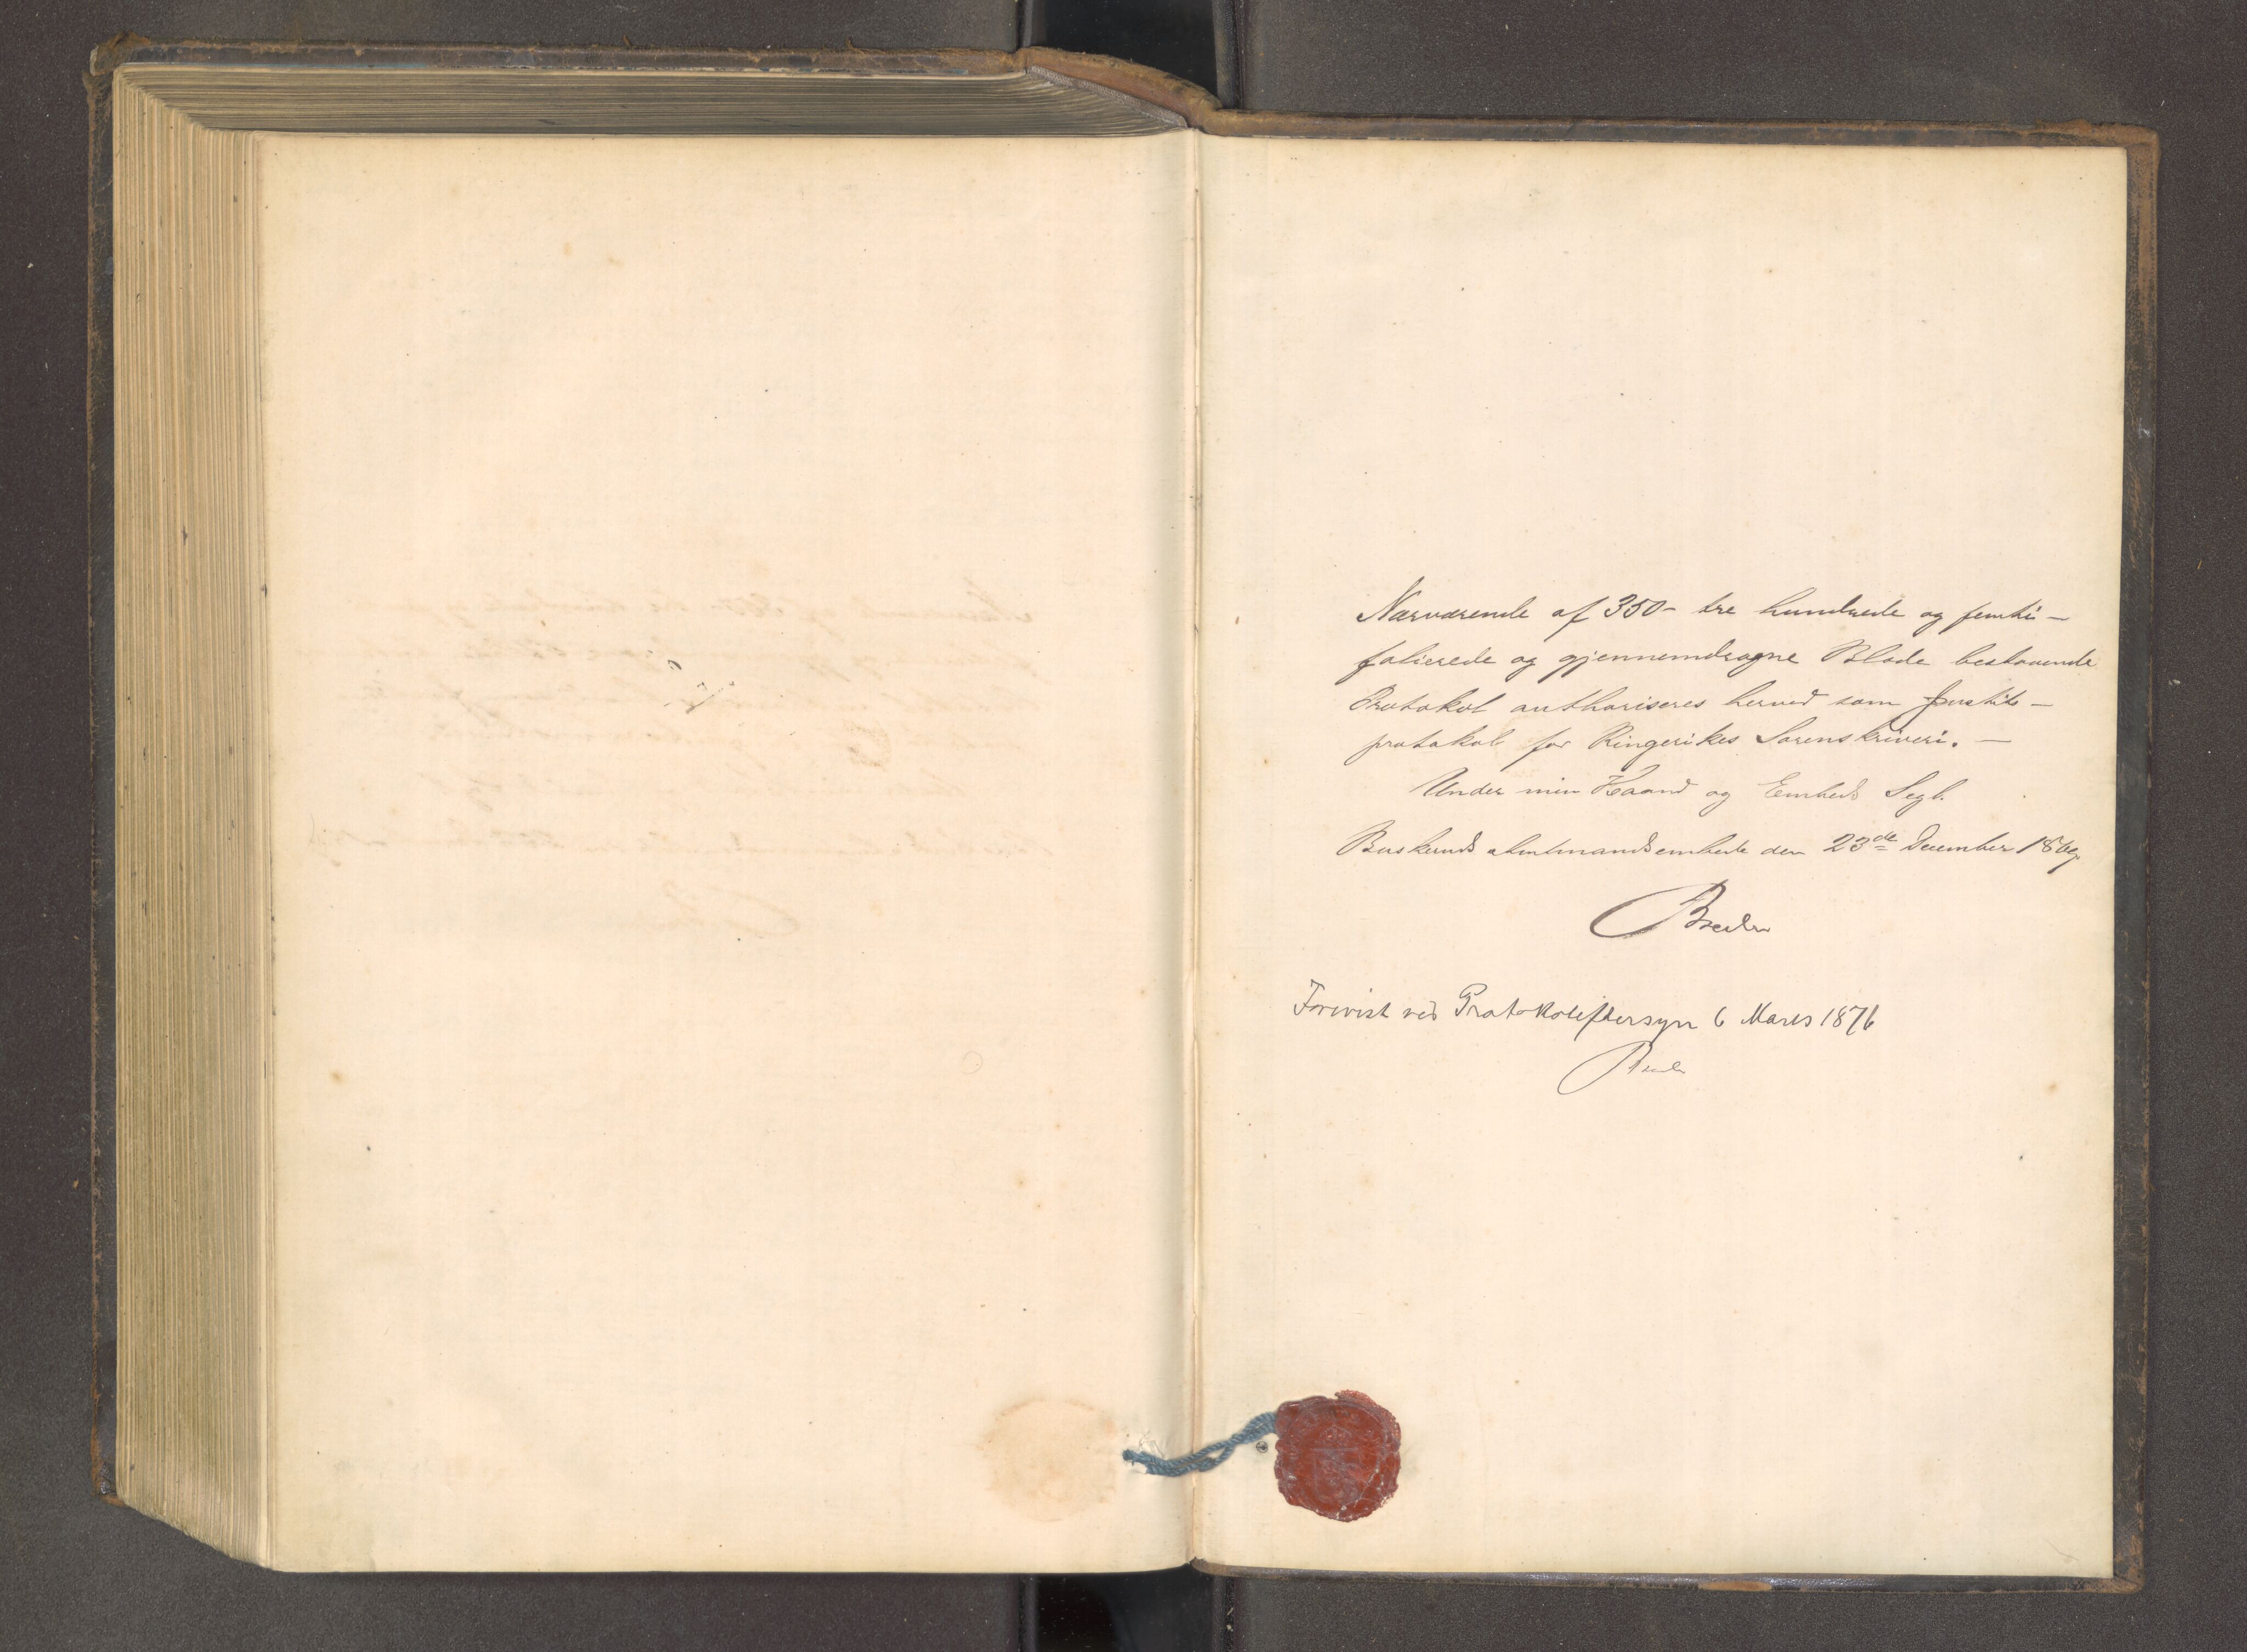 Nærværende af 350 - tre hundrede og femti -
folierede og gjennemdragne Blade bestaaende
Protokol authoriseres herved som Justits -
protokol for Ringerikes Sorenskriveri. -
Under min Haand og Embeds Segl.
Buskeruds Amtmandsembede den 23de December 1869.
Breder
Forevist ved Protokoleftersyn 6 Marts 1876
Breder